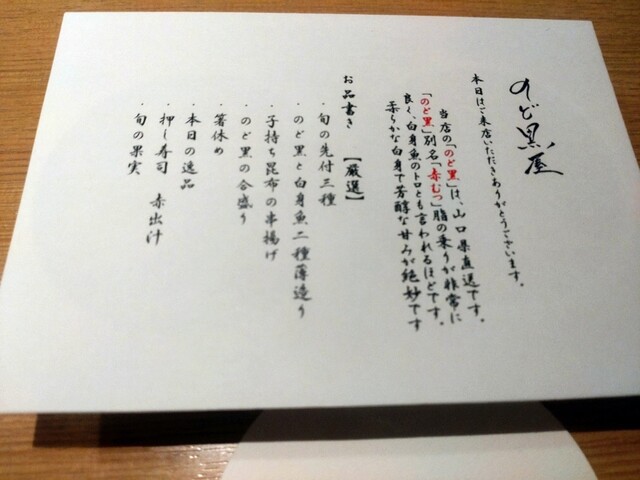 のど黒屋
本日はご来店いただきありがとうございます。
当店の「のど黒」は、山口県直送です。
「のど黒」別名「赤むつ」脂の乗りが非常に
良く、白身魚のトロとも言われるほどです。
柔らかな白身で芳醇な甘みが絶妙です
お品書き 【厳選】
・旬の先付三種
・のど黒と白身魚二種薄造り
・子持ち昆布の串揚げ
・のど黒の合盛り
・箸休め
・本日の逸品
・押し寿司 赤出汁
・旬の果実